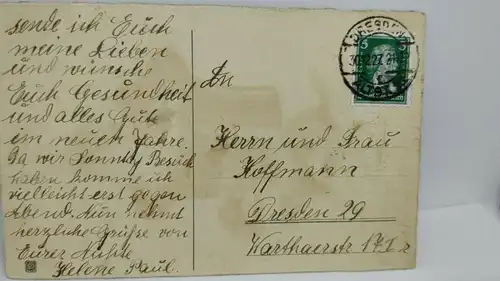 sende ich Euch
meine Lieben
und wünsche
Euch Gesundheit
und alles Gute
im neuen Jahre.
Da wir Sonntg Besuch
haben komme ich
vielleicht erst gegen
Abend. Nun nehmt
herzliche Grüße von
Eurer
Helene Paul.
An
Herrn und Frau
Hoffmann
Dresden 29
Warthaerstr 17 I r
DRESDEN
30.12.27
5